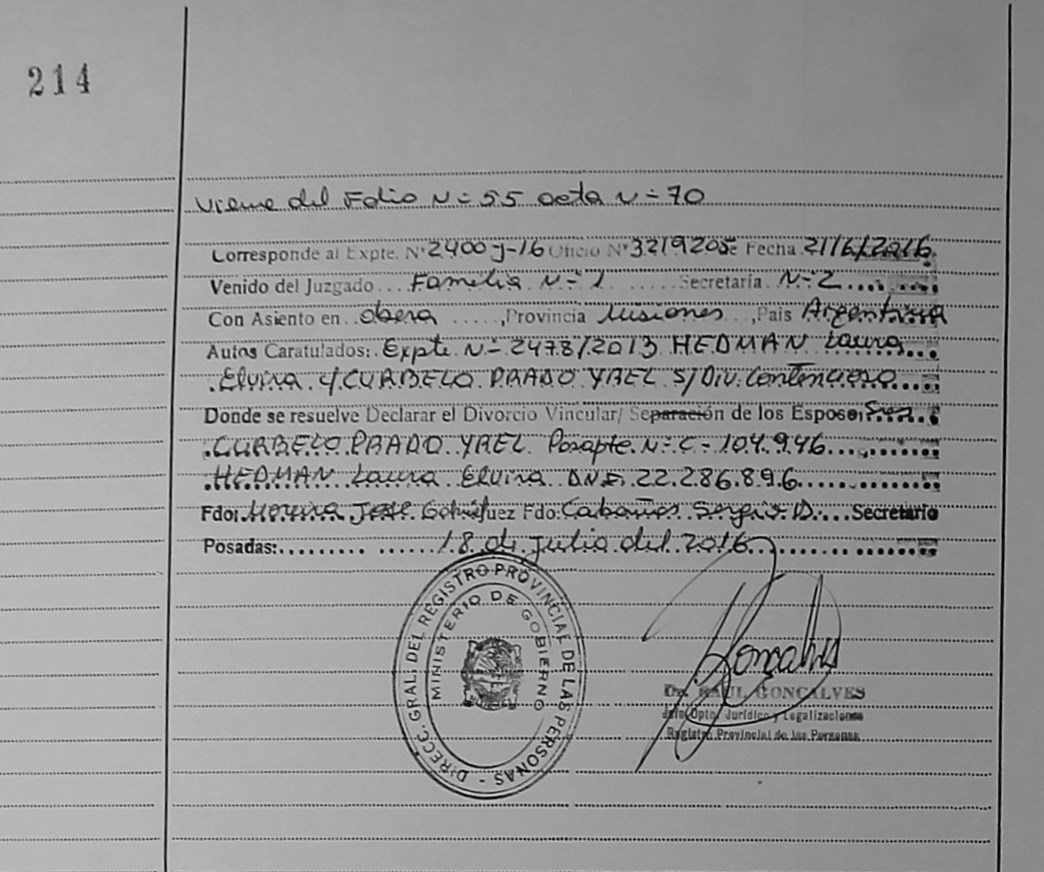 214
Viene del Folio N= 55 acta N= 70
Corresponde al Expte. Nº 2400 J-16 Oficio Nº 3219205 de Fecha 21/6/2016.
Venido del Juzgado... Familia N= 1 ..... Secretaria. N= 2....
Con Asiento en.. Obera ....., Provincia Misiones .., País Argentina
Autos Caratulados:. Expte. N= 2478/2013 HEDMAN Laura...
. Elvira c/ CURBELO PRADO YAEL S/ DIV. Contencioso....
Donde se resuelve Declarar el Divorcio Vincular/ Separación de los Esposos:
.CURBELO PRADO YAEL Pasapte. N= C- 104.946.........
.HEDMAN Laura Elvira DNI. 22.286.896..........
Fdo: José Fdo: Cabañas Sergio D.... Secretario
Posadas:......... ...... 18 de julio del 2016...............
DIRECC. GRAL. DEL REGISTRO PROVINCIAL DE LAS PERSONAS -
MINISTERIO DE GOBIERNO
Goncalves
Dr. RAUL GONCALVES
Jefe Dpto. Jurídico y Legalizaciones
Registro Provincial de las Personas